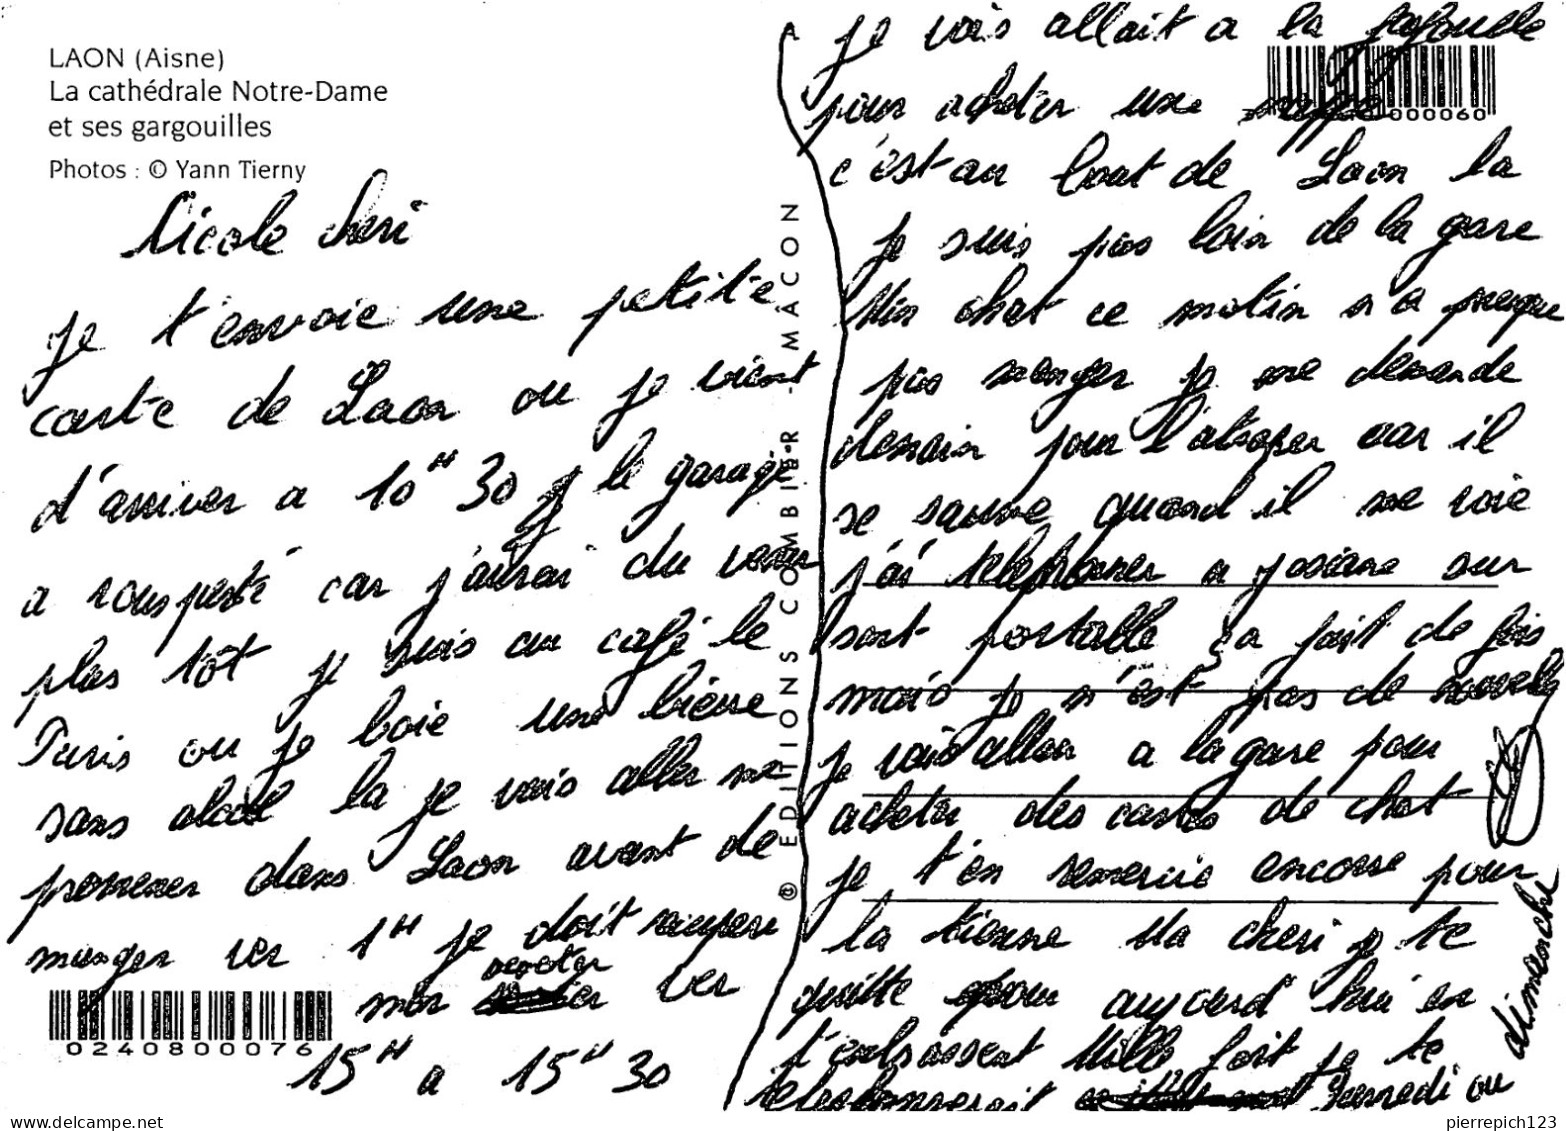 LAON (Aisne)
La cathédrale Notre-Dame
et ses gargouilles
Photos : © Yann Tierny
Nicole cheri
je t'envoie une petite
carte de Laon ou je vient
d'arriver a 10H 30 le garage
a rouspeté car j'aurai du venir
plus tôt je suis au café le
Paris ou je boie une bierre
sans alcool la je vais aller me
promener dans Laon avant de
manger ver 1H je doit recupere
mon scooter ver
15H a 15H 30
024080007 6
© EDITIONS COMBIER - MÂCON
je vais allait a la
pour acheter une nappe
000060
c'est au bout de Laon la
je suis pas loin de la gare
Mon chat ce matin n a presque
pas manger je me demande
demain pour l'atraper car il
se sauve quand il me voie
j'ai telephoner a josiane sur
sont portable ça fait de fois
mais je n'est pas de nouvelle
je vais allon a la gare pour
acheter des cartes de chat
je t'en remercie encorre pour
la tienne Ma cheri je te
quitte pour aujourd'hui en
t'enbrassent Mille foit je te
telephonnerait Samedi ou
dimanche
pierrepich123